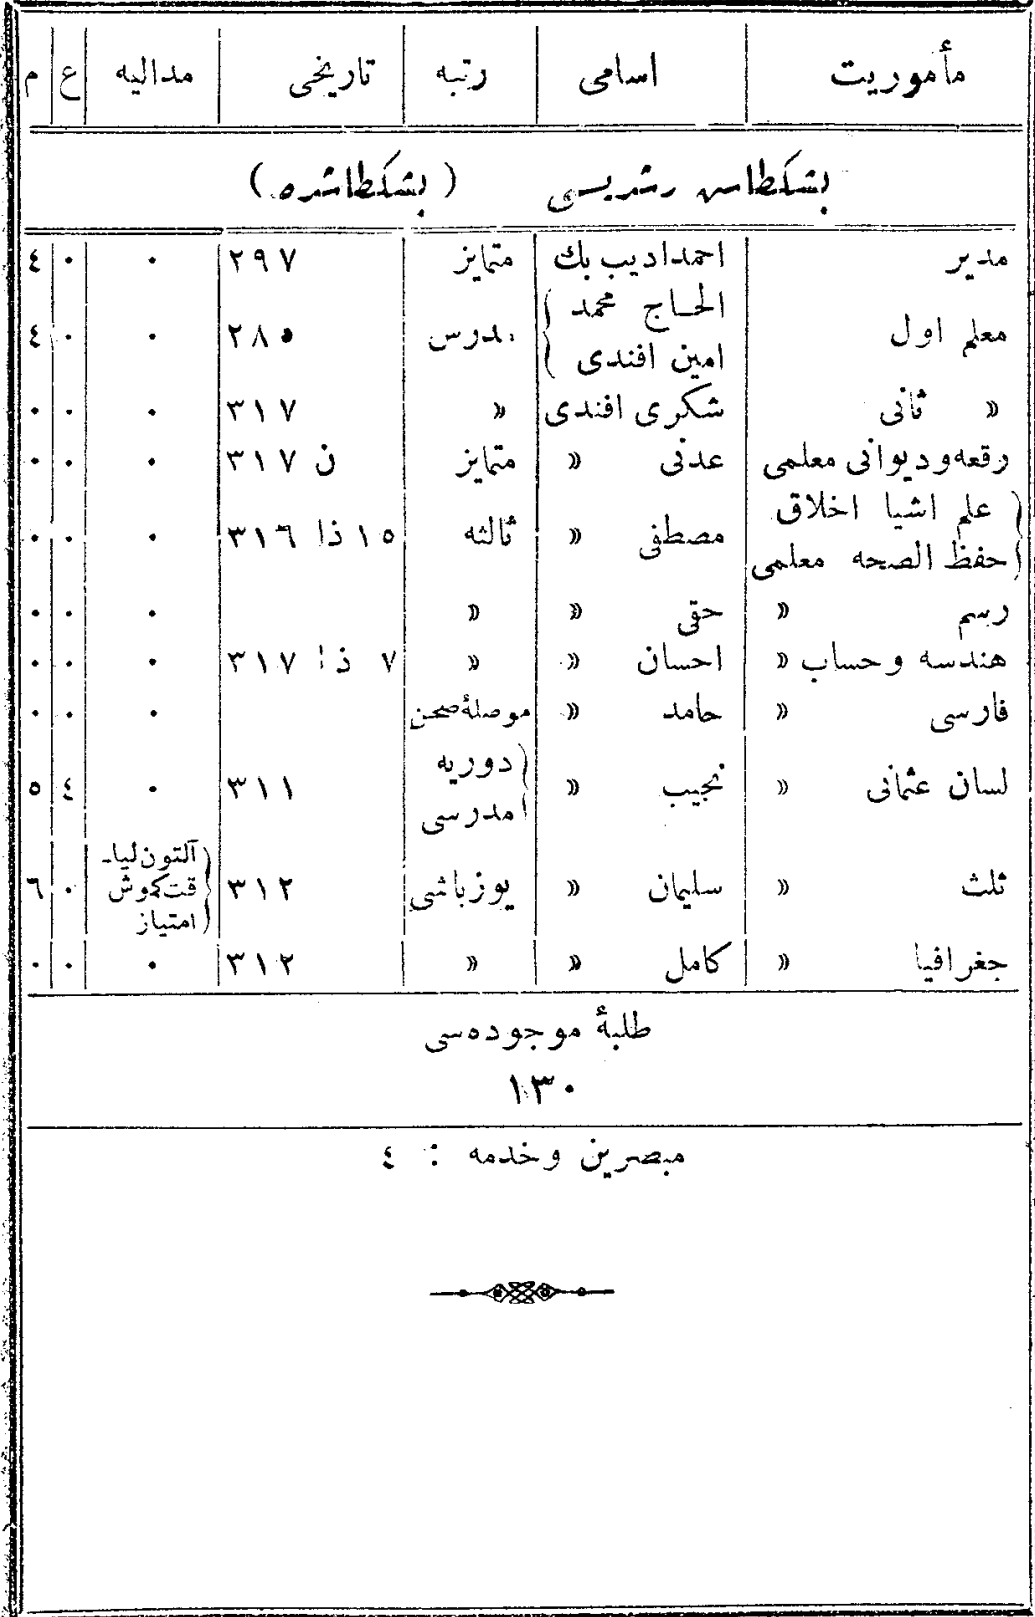 مأموریت اسامی رتبه تاریخی مدالیه ع م
بشكطاش رشدیسی (بشكطاشده)
مدیر احمد ادیب بك متمایز ٢٩٧ ٠ ٠ ٤
معلم اول { الحاج محمد امین افندی } مدرس ٢٨٥ ٠ ٠ ٤
» ثانی شكری افندی » ٣١٧ ٠ ٠ ٠
رقعه و دیوانی معلمی عدنی » متمایز ن ٣١٧ ٠ ٠ ٠
{ علم اشیا اخلاق حفظ الصحه معلمی } مصطفی » ثالثه ١٥ ذا ٣١٦ ٠ ٠ ٠
رسم » حقی » » ٠ ٠ ٠
هندسه و حساب » احسان » » ٧ ذا ٣١٧ ٠ ٠ ٠
فارسی » حامد » موصلۀ صحن ٠ ٠ ٠
لسان عثمانی » نجیب » { دوریه مدرسی ٣١١ ٠ ٤ ٥
ثلث » سلیمان » یوزباشی ٣١٢ { آلتون لیا۔ قت كموش امتیاز ٠ ٦
جغرافیا » كامل » » ٣١٢ ٠ ٠ ٠
طلبۀ موجوده‌سی
١٣٠
مبصرین و خدمه : ٤